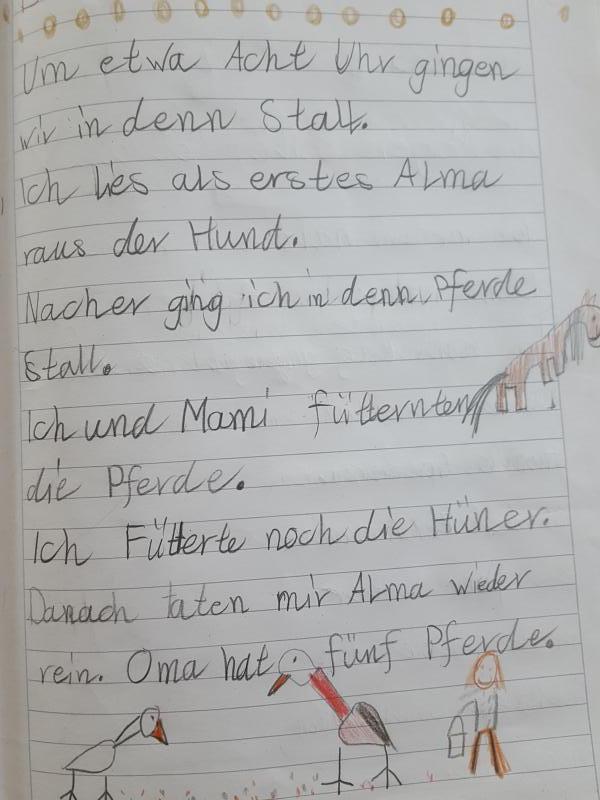 Um etwa Acht Uhr gingen
wir in denn Stall.
Ich lies als erstes Alma
raus der Hund.
Nacher ging ich in denn Pferde
Stall.
Ich und Mami fütternten
die Pferde.
Ich Fütterte noch die Hüner.
Danach taten mir Alma wieder
rein. Oma hat fünf Pferde.